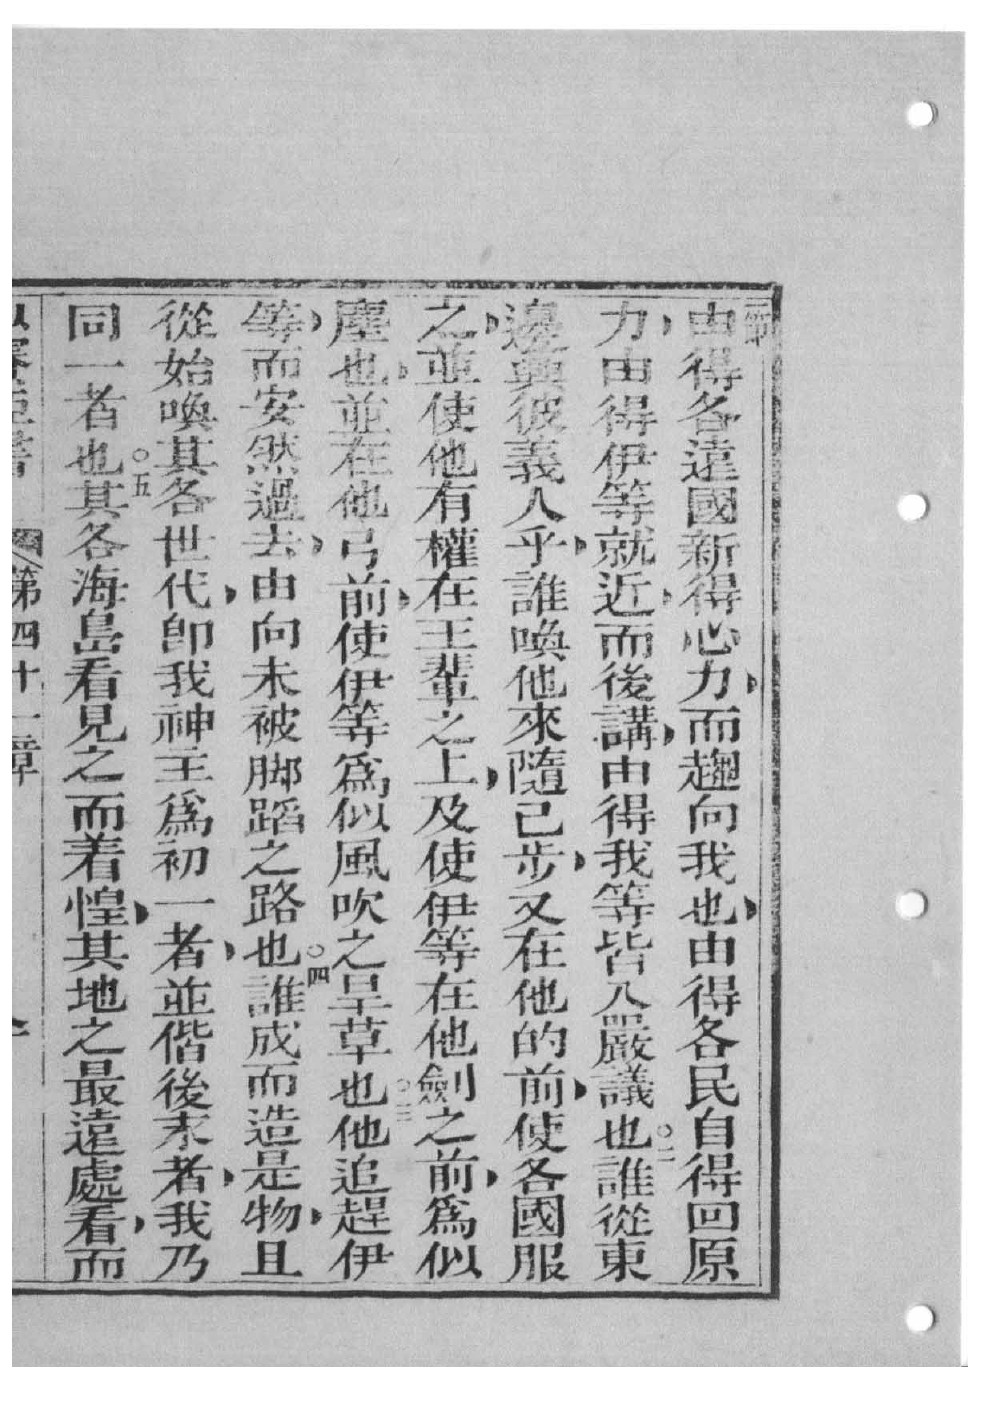 由得各遠國新得心力而趨向我也由得各民自得回原
力由得伊等就近而後講由得我等皆入嚴議也○二誰從東
邊興彼義人乎誰喚他來隨己步又在他的前使各國服
之並使他有權在王輩之上及使伊等在他劍之前為似
塵也並在他弓前使伊等為似風吹之旱草也○三他追趕伊
等而安然過去由向未被脚蹈之路也○四誰成而造是物且
從始喚其各世代即我神主為初一者並偕後末者我乃
同一者也○五其各海島看見之而着惶其地之最遠處看而
第四十一章